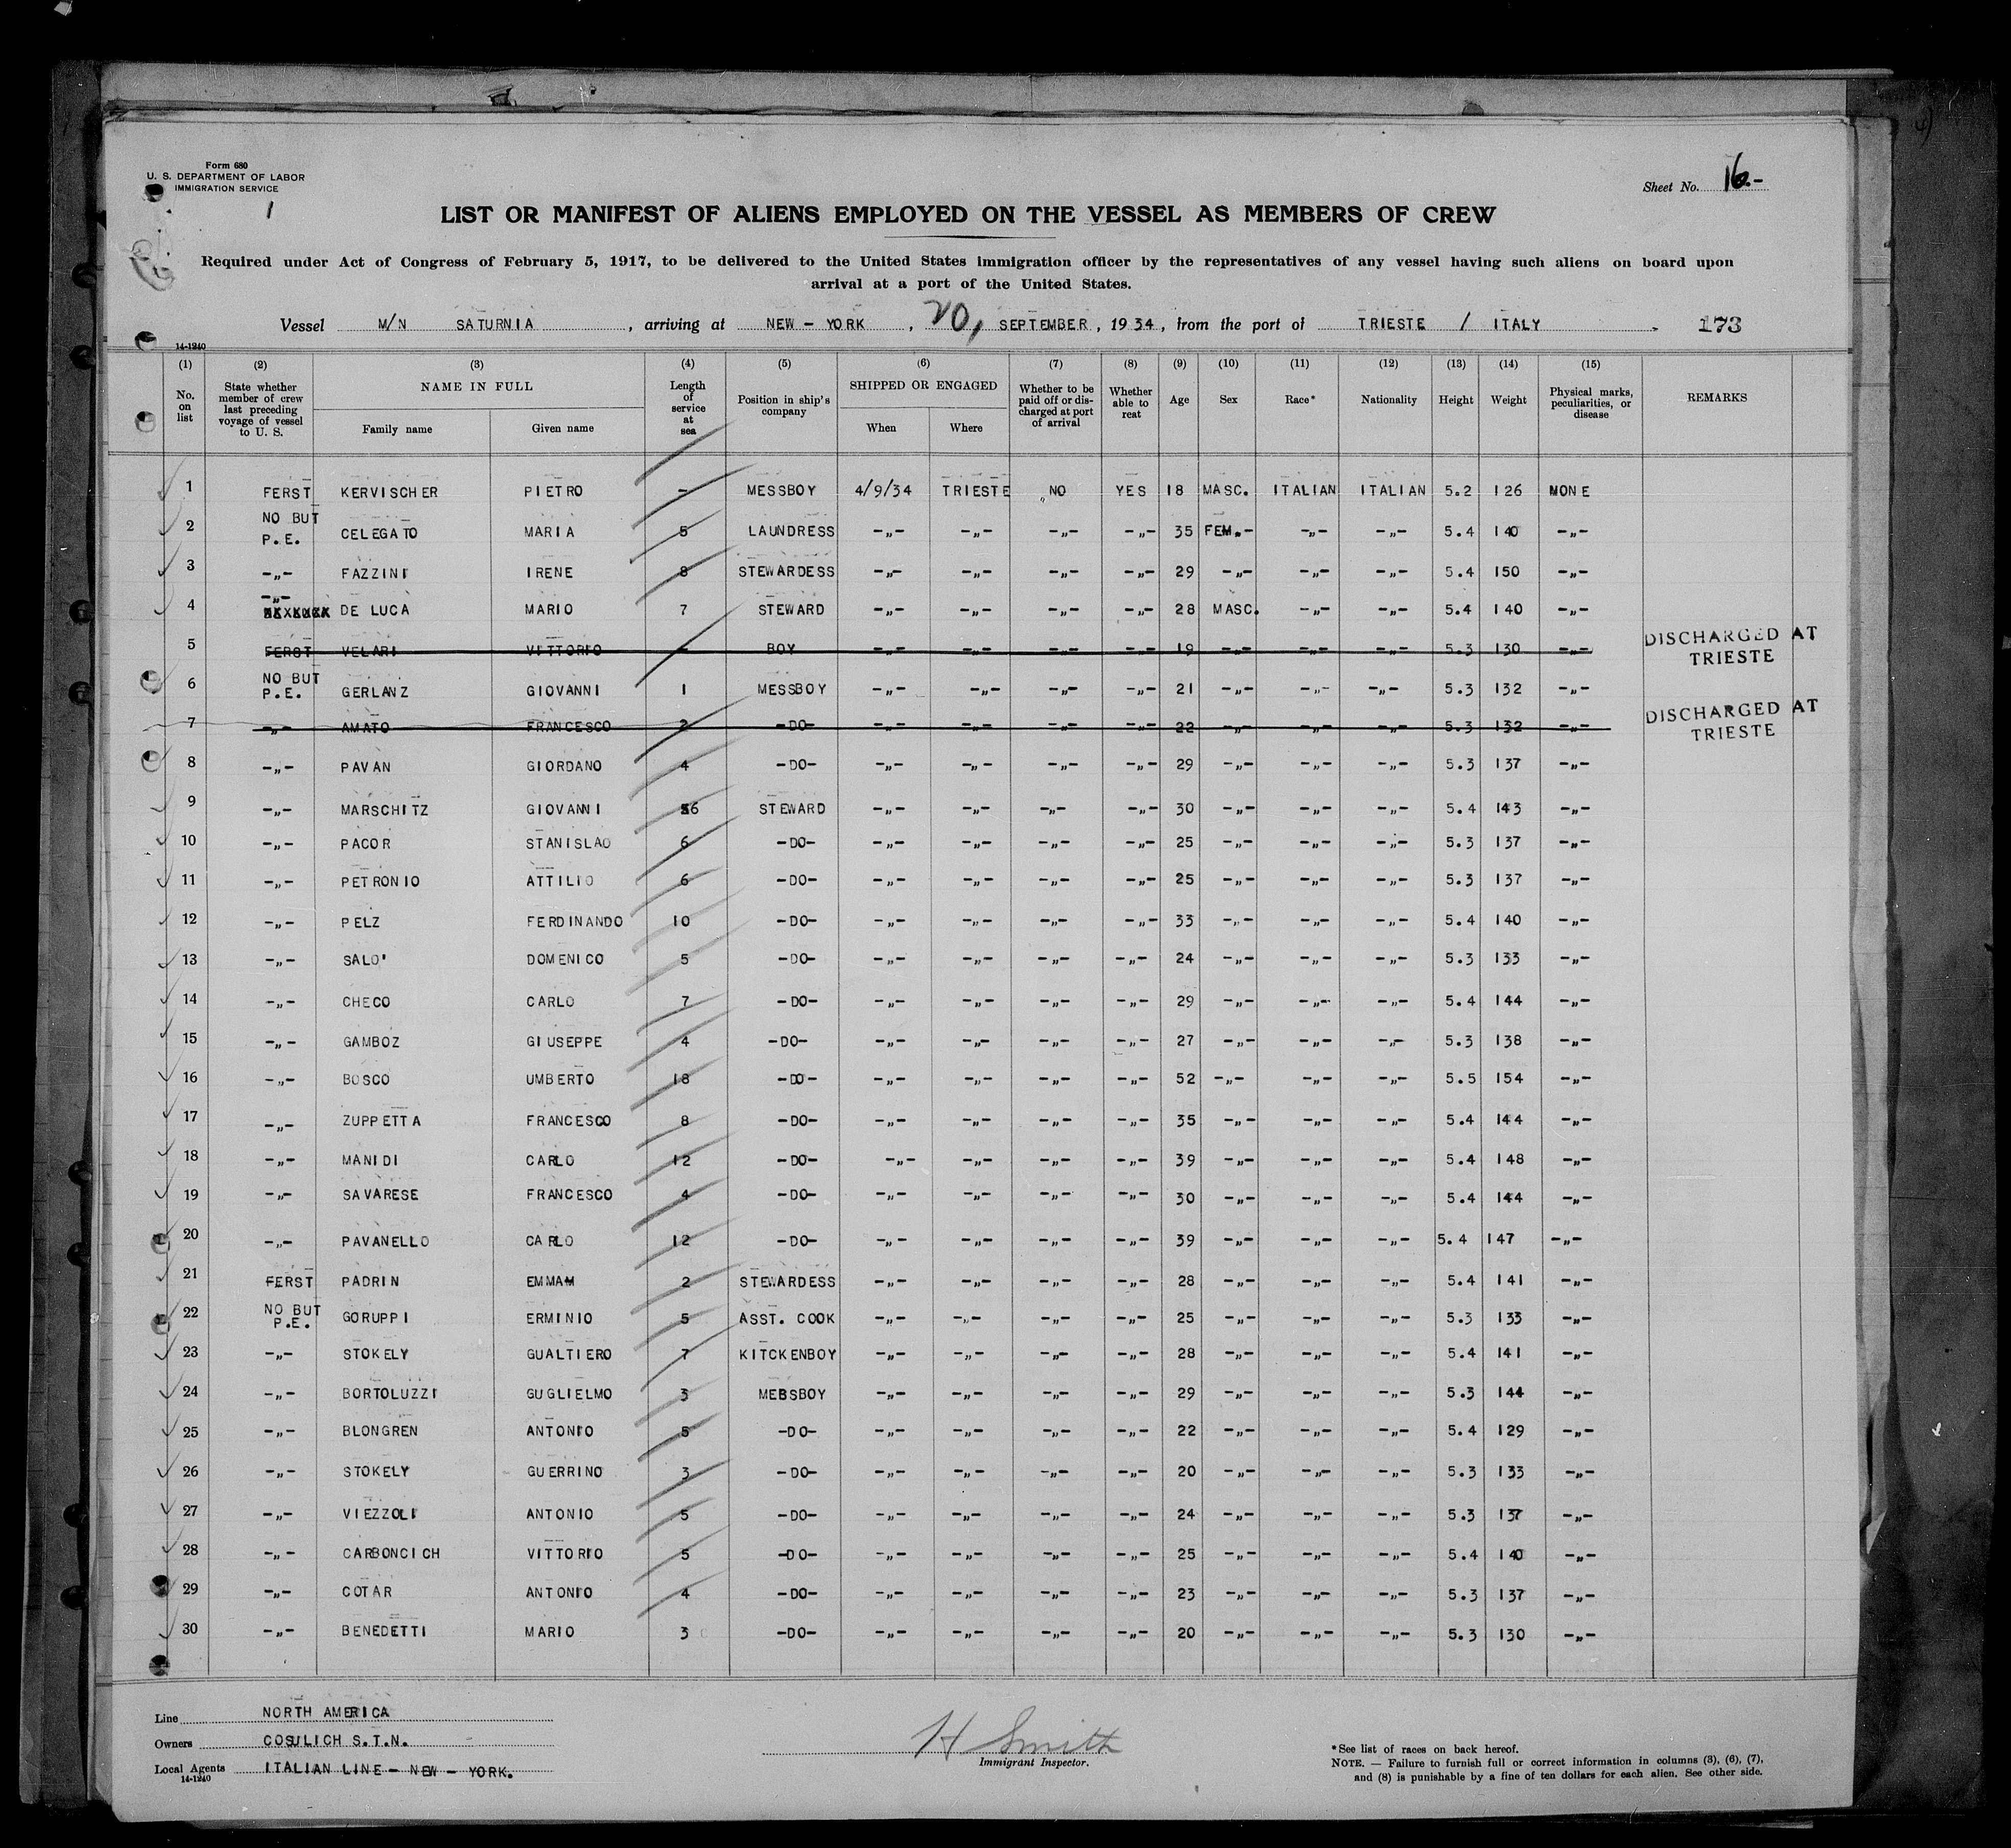 Form 680
U. S. DEPARTMENT OF LABOR
IMMIGRATION SERVICE
1
Sheet No. 16.-
LIST OR MANIFEST OF ALIENS EMPLOYED ON THE VESSEL AS MEMBERS OF CREW
Required under Act of Congress of February 5, 1917, to be delivered to the United States immigration officer by the representatives of any vessel having such aliens on board upon
arrival at a port of the United States.
Vessel M/N SATURNIA, arriving at NEW – YORK, 20, SEPTEMBER, 1934, from the port of TRIESTE / ITALY. 173
14-1240
(1) (2) (3) (4) (5) (6) (7) (8) (9) (10) (11) (12) (13) (14) (15)
No. on list State whether member of crew last preceding voyage of vessel to U. S. NAME IN FULL Family name Given name Length of service at sea Position in ship's company SHIPPED OR ENGAGED When Where Whether to be paid off or discharged at port of arrival Whether able to reat Age Sex Race* Nationality Height Weight Physical marks, peculiarities, or disease REMARKS
1 FERST KERVISCHER PIETRO – MESSBOY 4/9/34 TRIESTE NO YES 18 MASC. ITALIAN ITALIAN 5.2 126 MONE
2 NO BUT P.E. CELEGATO MARIA 5 LAUNDRESS -„- -„- -„- -„- 35 FEM.- -„- -„- 5.4 140 -„-
3 -„- FAZZINI IRENE 8 STEWARDESS -„- -„- -„- -„- 29 -„- -„- -„- 5.4 150 -„-
4 -„- DE LUCA MARIO 7 STEWARD -„- -„- -„- -„- 28 MASC. -„- -„- 5.4 140 -„-
5 FERST VELARI VITTORIO – BOY -„- -„- -„- -„- 19 -„- -„- -„- 5.3 130 -„- DISCHARGED AT TRIESTE
6 NO BUT P.E. GERLANZ GIOVANNI 1 MESSBOY -„- -„- -„- -„- 21 -„- -„- -„- 5.3 132 -„-
7 -„- AMATO FRANCESCO 2 -DO- -„- -„- -„- -„- 22 -„- -„- -„- 5.3 132 -„- DISCHARGED AT TRIESTE
8 -„- PAVAN GIORDANO 4 -DO- -„- -„- -„- -„- 29 -„- -„- -„- 5.3 137 -„-
9 -„- MARSCHITZ GIOVANNI 6 STEWARD -„- -„- -„- -„- 30 -„- -„- -„- 5.4 143 -„-
10 -„- PACOR STANISLAO 6 -DO- -„- -„- -„- -„- 25 -„- -„- -„- 5.3 137 -„-
11 -„- PETRONIO ATTILIO 6 -DO- -„- -„- -„- -„- 25 -„- -„- -„- 5.3 137 -„-
12 -„- PELZ FERDINANDO 10 -DO- -„- -„- -„- -„- 33 -„- -„- -„- 5.4 140 -„-
13 -„- SALO' DOMENICO 5 -DO- -„- -„- -„- -„- 24 -„- -„- -„- 5.3 133 -„-
14 -„- CHECO CARLO 7 -DO- -„- -„- -„- -„- 29 -„- -„- -„- 5.4 144 -„-
15 -„- GAMBOZ GIUSEPPE 4 -DO- -„- -„- -„- -„- 27 -„- -„- -„- 5.3 138 -„-
16 -„- BOSCO UMBERTO 18 -DO- -„- -„- -„- -„- 52 -„- -„- -„- 5.5 154 -„-
17 -„- ZUPPETTA FRANCESCO 8 -DO- -„- -„- -„- -„- 35 -„- -„- -„- 5.4 144 -„-
18 -„- MANIDI CARLO 12 -DO- -„- -„- -„- -„- 39 -„- -„- -„- 5.4 148 -„-
19 -„- SAVARESE FRANCESCO 4 -DO- -„- -„- -„- -„- 30 -„- -„- -„- 5.4 144 -„-
20 -„- PAVANELLO CARLO 12 -DO- -„- -„- -„- -„- 39 -„- -„- -„- 5.4 147 -„-
21 FERST PADRIN EMMAM 2 STEWARDESS -„- -„- -„- -„- 28 -„- -„- -„- 5.4 141 -„-
22 NO BUT P.E. GORUPPI ERMINIO 5 ASST. COOK -„- -„- -„- -„- 25 -„- -„- -„- 5.3 133 -„-
23 -„- STOKELY GUALTIERO 7 KITCKENBOY -„- -„- -„- -„- 28 -„- -„- -„- 5.4 141 -„-
24 -„- BORTOLUZZI GUGLIELMO 3 MEBSBOY -„- -„- -„- -„- 29 -„- -„- -„- 5.3 144 -„-
25 -„- BLONGREN ANTONIO 5 -DO- -„- -„- -„- -„- 22 -„- -„- -„- 5.4 129 -„-
26 -„- STOKELY GUERRINO 3 -DO- -„- -„- -„- -„- 20 -„- -„- -„- 5.3 133 -„-
27 -„- VIEZZOLI ANTONIO 5 -DO- -„- -„- -„- -„- 24 -„- -„- -„- 5.3 137 -„-
28 -„- CARBONCICH VITTORIO 5 -DO- -„- -„- -„- -„- 25 -„- -„- -„- 5.4 140 -„-
29 -„- COTAR ANTONIO 4 -DO- -„- -„- -„- -„- 23 -„- -„- -„- 5.3 137 -„-
30 -„- BENEDETTI MARIO 3 -DO- -„- -„- -„- -„- 20 -„- -„- -„- 5.3 130 -„-
Line NORTH AMERICA
Owners COSULICH S.T.N.
Local Agents ITALIAN LINE – NEW – YORK.
14-1240
H Smith
Immigrant Inspector.
*See list of races on back hereof.
NOTE. — Failure to furnish full or correct information in columns (3), (6), (7),
and (8) is punishable by a fine of ten dollars for each alien. See other side.